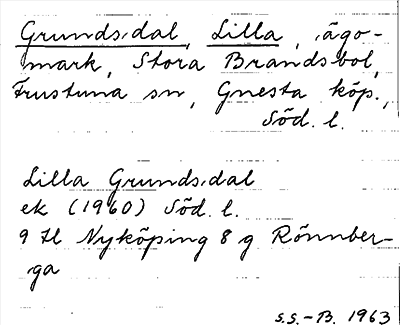 Grundsdal, Lilla, ägo-
mark, Stora Brandsbol,
Frustuna sn, Gnesta köp.,
Söd. l.
Lilla Grundsdal
ek (1960) Söd. l.
9 H Nyköping 8 g Rönnber-
ga
S.S.-B. 1963